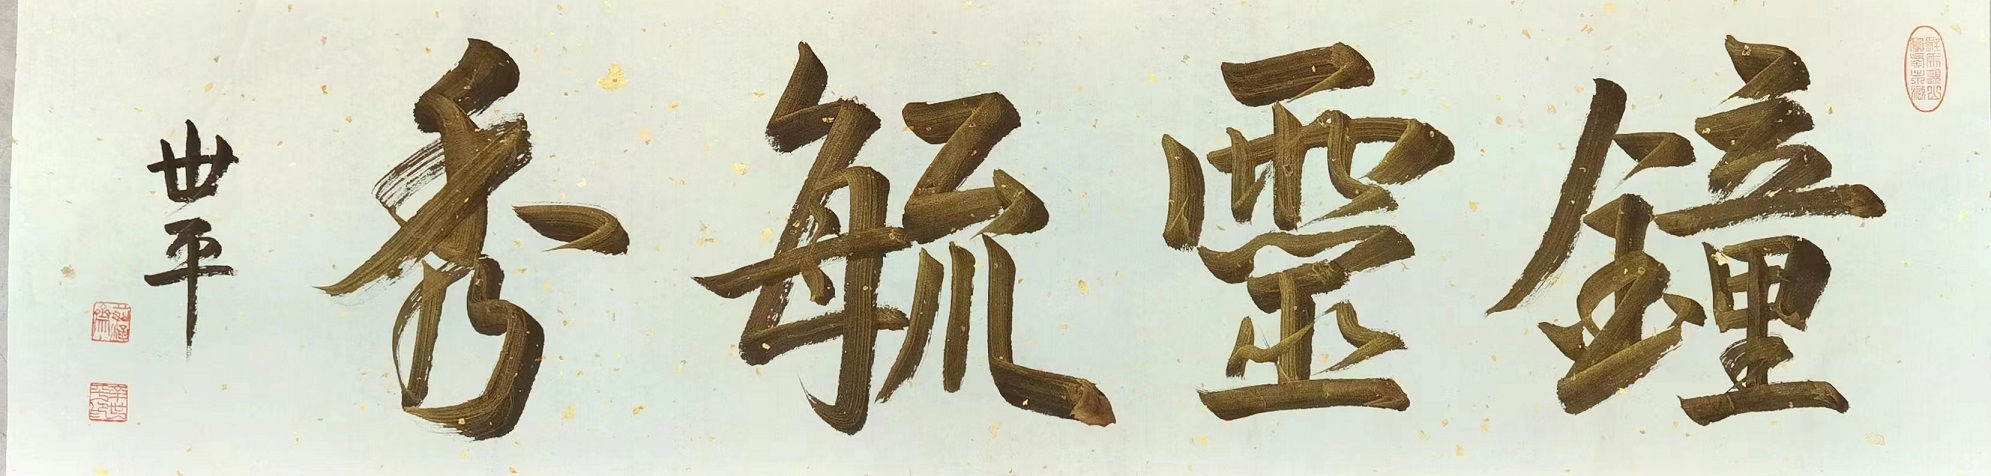 鐘靈毓秀
世平